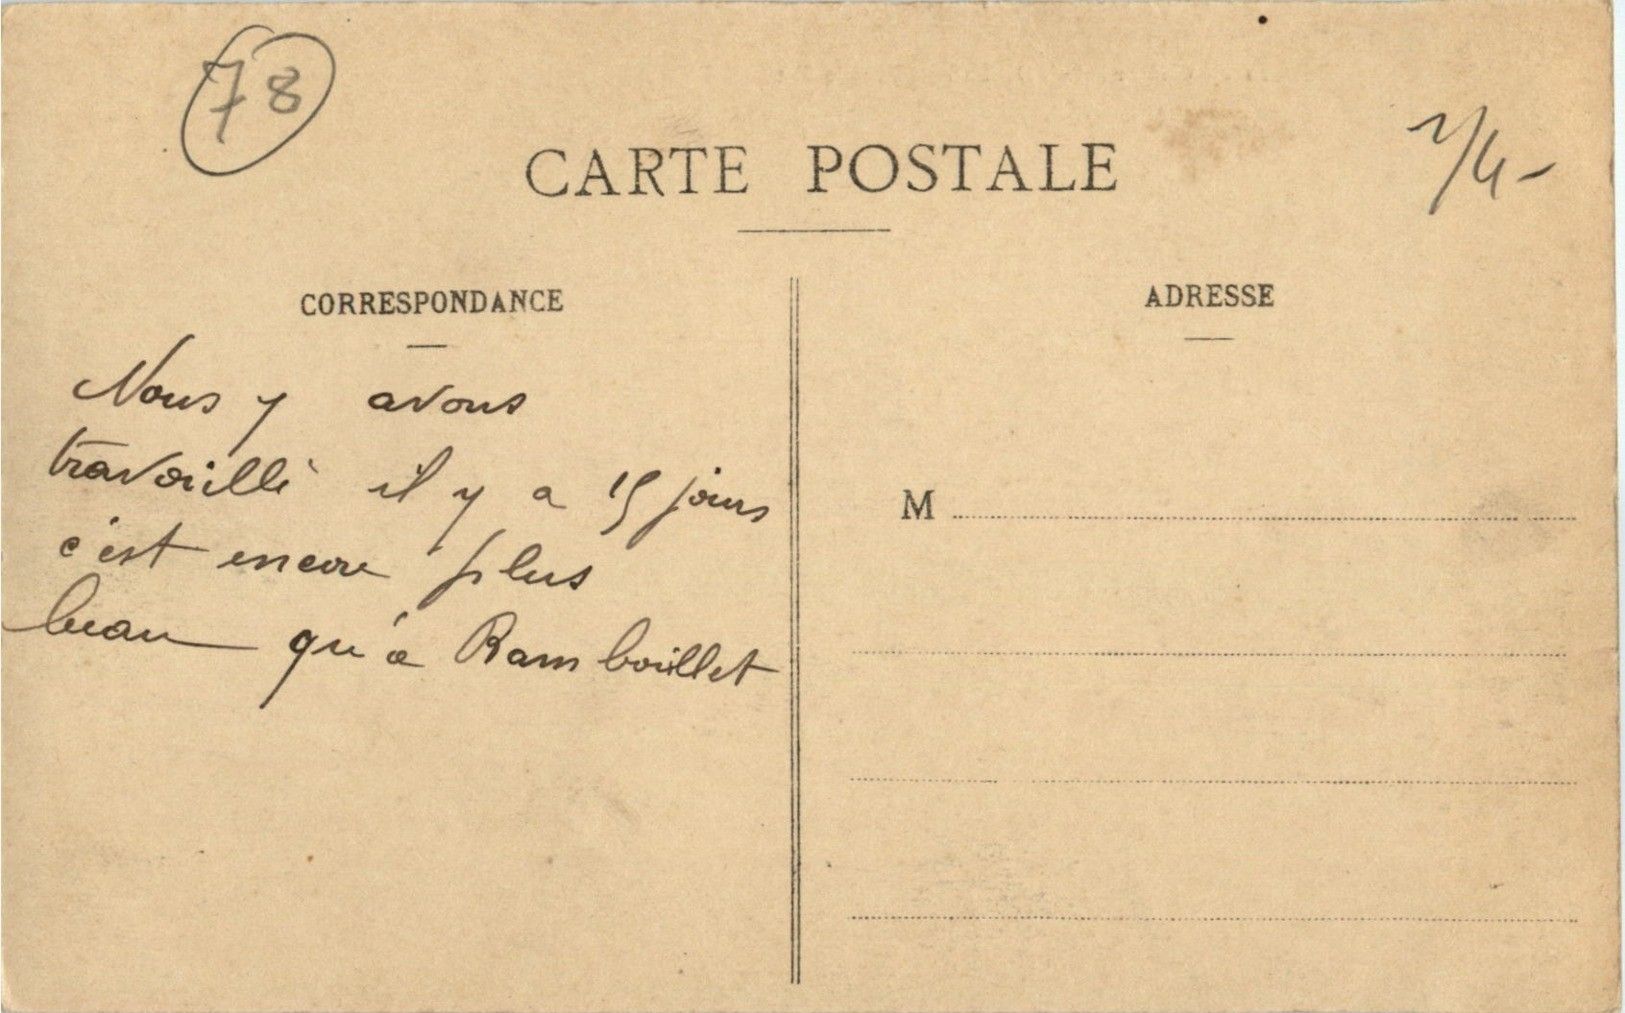 78
CARTE POSTALE
CORRESPONDANCE
Nous y avons
travaillé il y a 15 jours
c'est encore plus
beau qu'a Ramboillet
ADRESSE
M